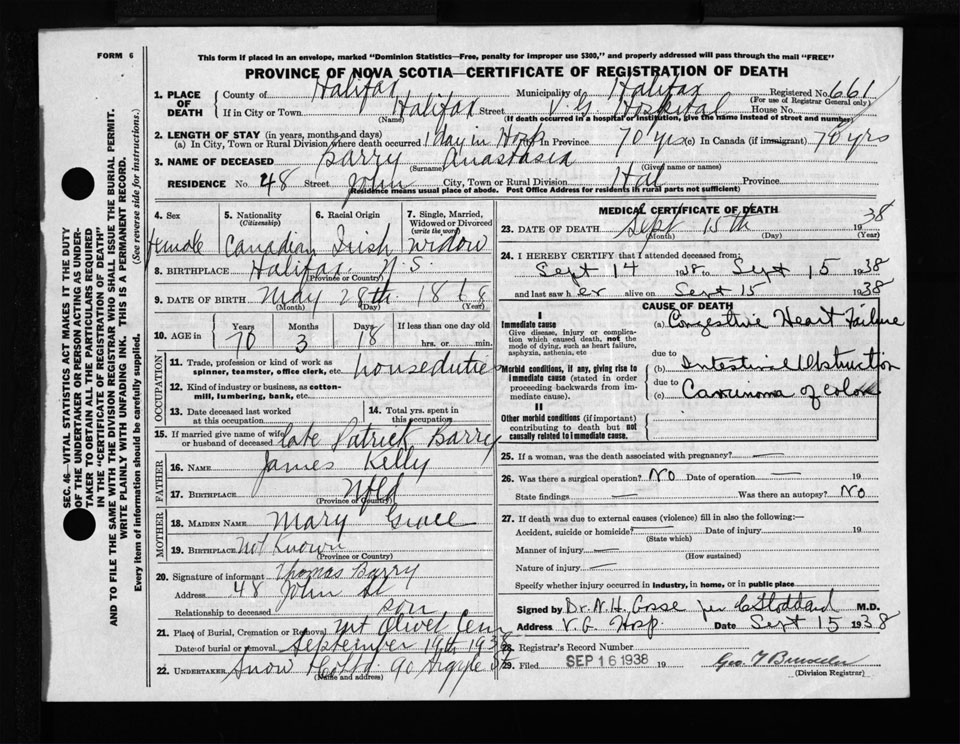 FORM 6
This form if placed in an envelope, marked "Dominion Statistics—Free, penalty for improper use $300," and properly addressed will pass through the mail "FREE"
PROVINCE OF NOVA SCOTIA—CERTIFICATE OF REGISTRATION OF DEATH
SEC. 46—VITAL STATISTICS ACT MAKES IT THE DUTY
OF THE UNDERTAKER OR PERSON ACTING AS UNDER-
TAKER TO OBTAIN ALL THE PARTICULARS REQUIRED
IN THE "CERTIFICATE OF REGISTRATION OF DEATH"
AND TO FILE THE SAME WITH THE DIVISION REGISTRAR WHO SHALL ISSUE THE BURIAL PERMIT.
WRITE PLAINLY WITH UNFADING INK. THIS IS A PERMANENT RECORD.
Every item of information should be carefully supplied. (See reverse side for instructions.)
1. PLACE OF DEATH
County of Halifax Municipality of Halifax Registered No. 661
(For use of Registrar General only)
If in City or Town Halifax Street V.G. Hospital House No.
(Name) (If death occurred in a hospital or institution, give the name instead of street and number)
2. LENGTH OF STAY (in years, months and days)
(a) In City, Town or Rural Division where death occurred 1 day in Hosp (b) In Province 70 yrs (c) In Canada (if immigrant) 70 yrs
3. NAME OF DECEASED Barry Anastasia
(Surname) (Given name or names)
RESIDENCE No. 48 Street John City, Town or Rural Division Hal Province
(Residence means usual place of abode. Post Office Address for residents in rural parts not sufficient)
4. Sex female
5. Nationality (Citizenship) Canadian
6. Racial Origin Irish
7. Single, Married, Widowed or Divorced (write the word) Widow
8. BIRTHPLACE Halifax N.S.
(Province or Country)
9. DATE OF BIRTH May 28th 1868
(Month) (Day) (Year)
10. AGE in Years 70 Months 3 Days 18 If less than one day old hrs. or min.
OCCUPATION
11. Trade, profession or kind of work as spinner, teamster, office clerk, etc. house duties
12. Kind of industry or business, as cotton-mill, lumbering, bank, etc.
13. Date deceased last worked at this occupation
14. Total yrs. spent in this occupation
15. If married give name of wife or husband of deceased late Patrick Barry
FATHER
16. NAME James Kelly
17. BIRTHPLACE Nfld
(Province or Country)
MOTHER
18. MAIDEN NAME Mary Grace
19. BIRTHPLACE Not Known
(Province or Country)
20. Signature of informant Thomas Barry
Address 48 John St
Relationship to deceased son
21. Place of Burial, Cremation or Removal Mt Olivet Cem
Date of burial or removal September 19th 1938
22. UNDERTAKER Snow Co Ltd. 90 Argyle St
(Name and address)
MEDICAL CERTIFICATE OF DEATH
23. DATE OF DEATH Sept 15th 1938
(Month) (Day) (Year)
24. I HEREBY CERTIFY that I attended deceased from:
Sept 14 1938 to Sept 15 1938
and last saw h er alive on Sept 15 1938
CAUSE OF DEATH
I
Immediate cause
Give disease, injury or complication which caused death, not the mode of dying, such as heart failure, asphyxia, asthenia, etc
(a) Congestive Heart Failure
due to
Morbid conditions, if any, giving rise to immediate cause (stated in order proceeding backwards from immediate cause).
(b) Intestinal Obstruction
due to
(c) Carcinoma of colon
II
Other morbid conditions (if important) contributing to death but not causally related to immediate cause.
25. If a woman, was the death associated with pregnancy? —
26. Was there a surgical operation? No Date of operation — 19
State findings — Was there an autopsy? No
27. If death was due to external causes (violence) fill in also the following:—
Accident, suicide or homicide? — Date of injury 19
(State which)
Manner of injury —
(How sustained)
Nature of injury —
Specify whether injury occurred in industry, in home, or in public place
Signed by Dr. N.H. Gosse per C Stoddard M.D.
Address V.G. Hosp. Date Sept 15 1938
28. Registrar's Record Number
29. Filed SEP 16 1938 19
(Division Registrar)